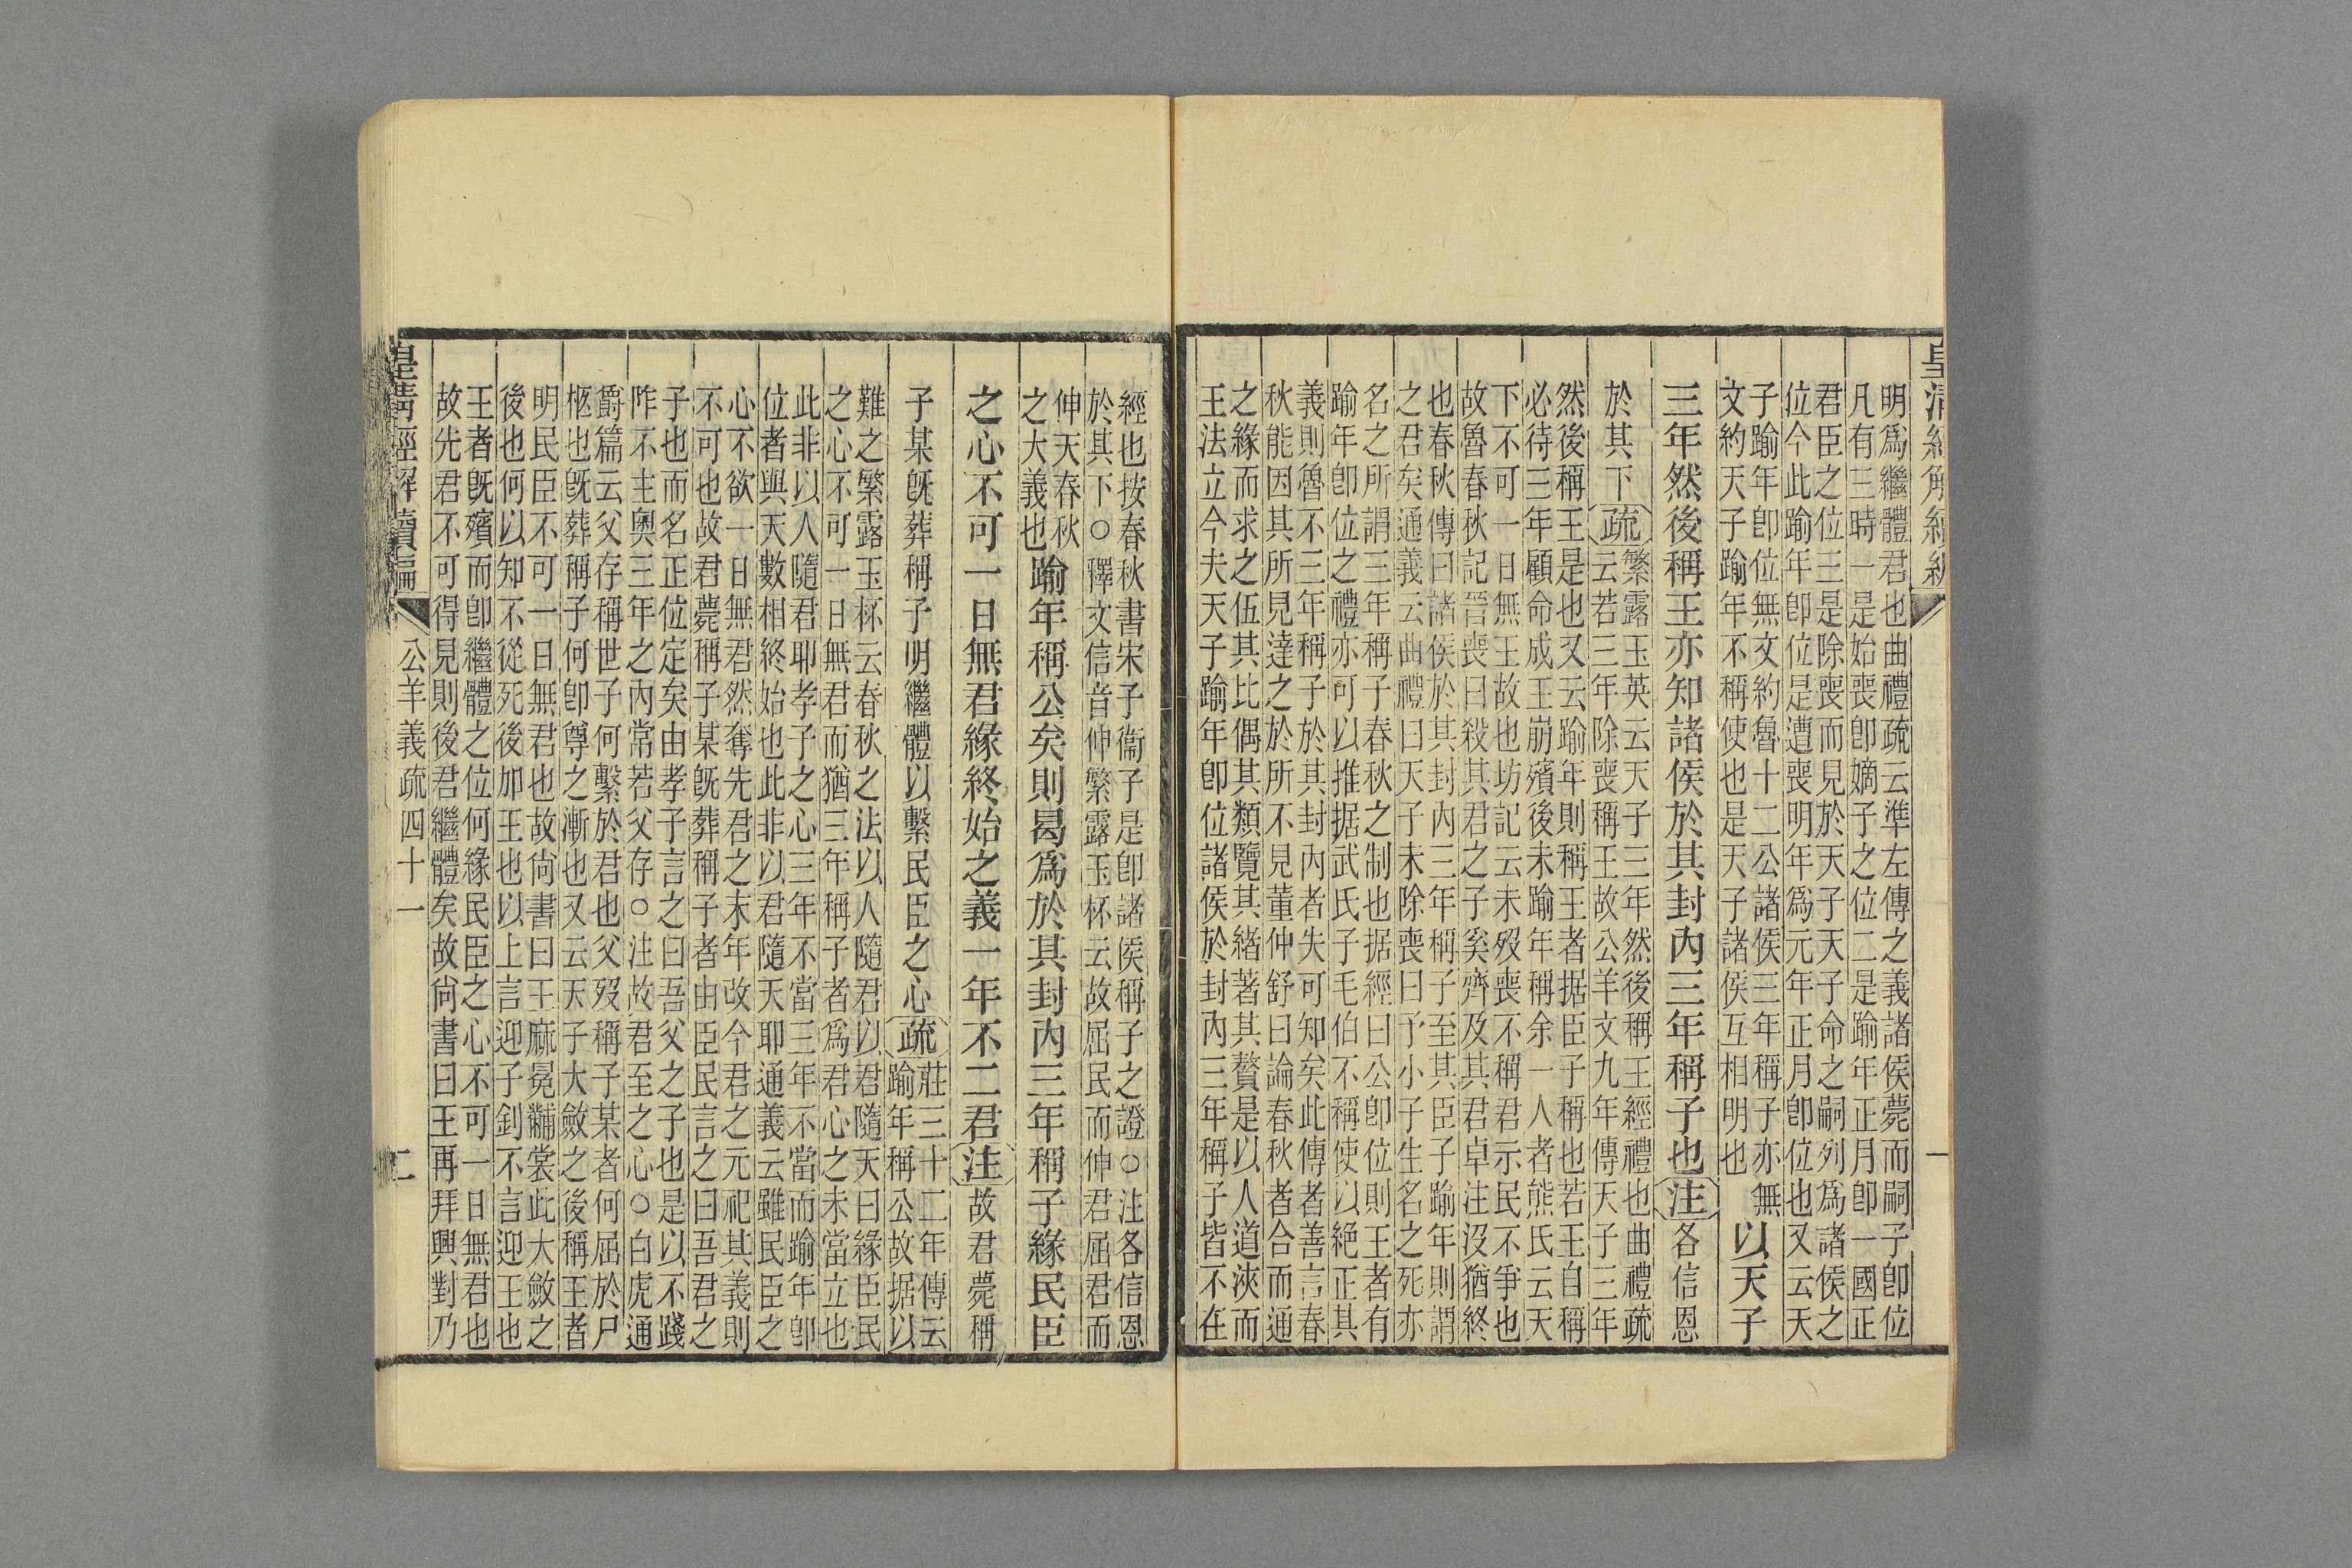 皇清經解續編
一
明爲繼體君也曲禮疏云準左傳之義諸侯薨而嗣子卽位
凡有三時一是始喪卽嫡子之位二是踰年正月卽一國正
君臣之位三是除喪而見於天子天子命之嗣列爲諸侯之
位今此踰年卽位是遭喪明年爲元年正月卽位也又云天
子踰年卽位無文約魯十二公諸侯三年稱子亦無
文約天子踰年不稱使也是天子諸侯互相明也
以天子
三年然後稱王亦知諸侯於其封內三年稱子也注各信恩
於其下疏
繁露玉英云天子三年然後稱王經禮也曲禮疏
云若三年除喪稱王故公羊文九年傳天子三年
然後稱王是也又云踰年則稱王者据臣子稱也若王自稱
必待三年顧命成王崩殯後未踰年稱余一人者熊氏云天
下不可一日無王故也坊記云未歿喪不稱君示民不爭也
故魯春秋記晉喪曰殺其君之子奚齊及其君卓注沒猶終
也春秋傳曰諸侯於其封內三年稱子至其臣子踰年則謂
之君矣通義云曲禮曰天子未除喪曰予小子生名之死亦
名之所謂三年稱子春秋之制也据經曰公卽位則王者有
踰年卽位之禮亦可以推据武氏子毛伯不稱使以絕正其
義則魯不三年稱子於其封內者失可知矣此傳者善言春
秋能因其所見達之於所不見董仲舒曰論春秋者合而通
之緣而求之伍其比偶其類覽其緒著其贅是以人道浹而
王法立今夫天子踰年卽位諸侯於封內三年稱子皆不在
經也按春秋書宋子衞子是卽諸侯稱子之證○注各信恩
於其下○釋文信音伸繁露玉杯云故屈民而伸君屈君而
伸天春秋
之大義也
踰年稱公矣則曷爲於其封內三年稱子緣民臣
之心不可一日無君緣終始之義一年不二君注故君薨稱
子某旣葬稱子明繼體以繫民臣之心疏
莊三十二年傳云
踰年稱公故据以
難之繁露玉杯云春秋之法以人隨君以君隨天曰緣臣民
之心不可一日無君而猶三年稱子者爲君心之未當立也
此非以人隨君耶孝子之心三年不當三年不當而踰年卽
位者與天數相終始也此非以君隨天耶通義云雖民臣之
心不欲一日無君然奪先君之末年改今君之元祀其義則
不可也故君薨稱子某旣葬稱子者由臣民言之曰吾君之
子也而名正位定矣由孝子言之曰吾父之子也是以不踐
阼不主奧三年之內常若父存○注故君至之心○白虎通
爵篇云父存稱世子何繫於君也父歿稱子某者何屈於尸
柩也旣葬稱子何卽尊之漸也又云天子大斂之後稱王者
明民臣不可一日無君也故尙書曰王麻冕黼裳此大斂之
後也何以知不從死後加王也以上言迎子釗不言迎王也
王者旣殯而卽繼體之位何緣民臣之心不可一日無君也
故先君不可得見則後君繼體矣故尙書曰王再拜興對乃
皇清經解續編
公羊義疏四十一
二